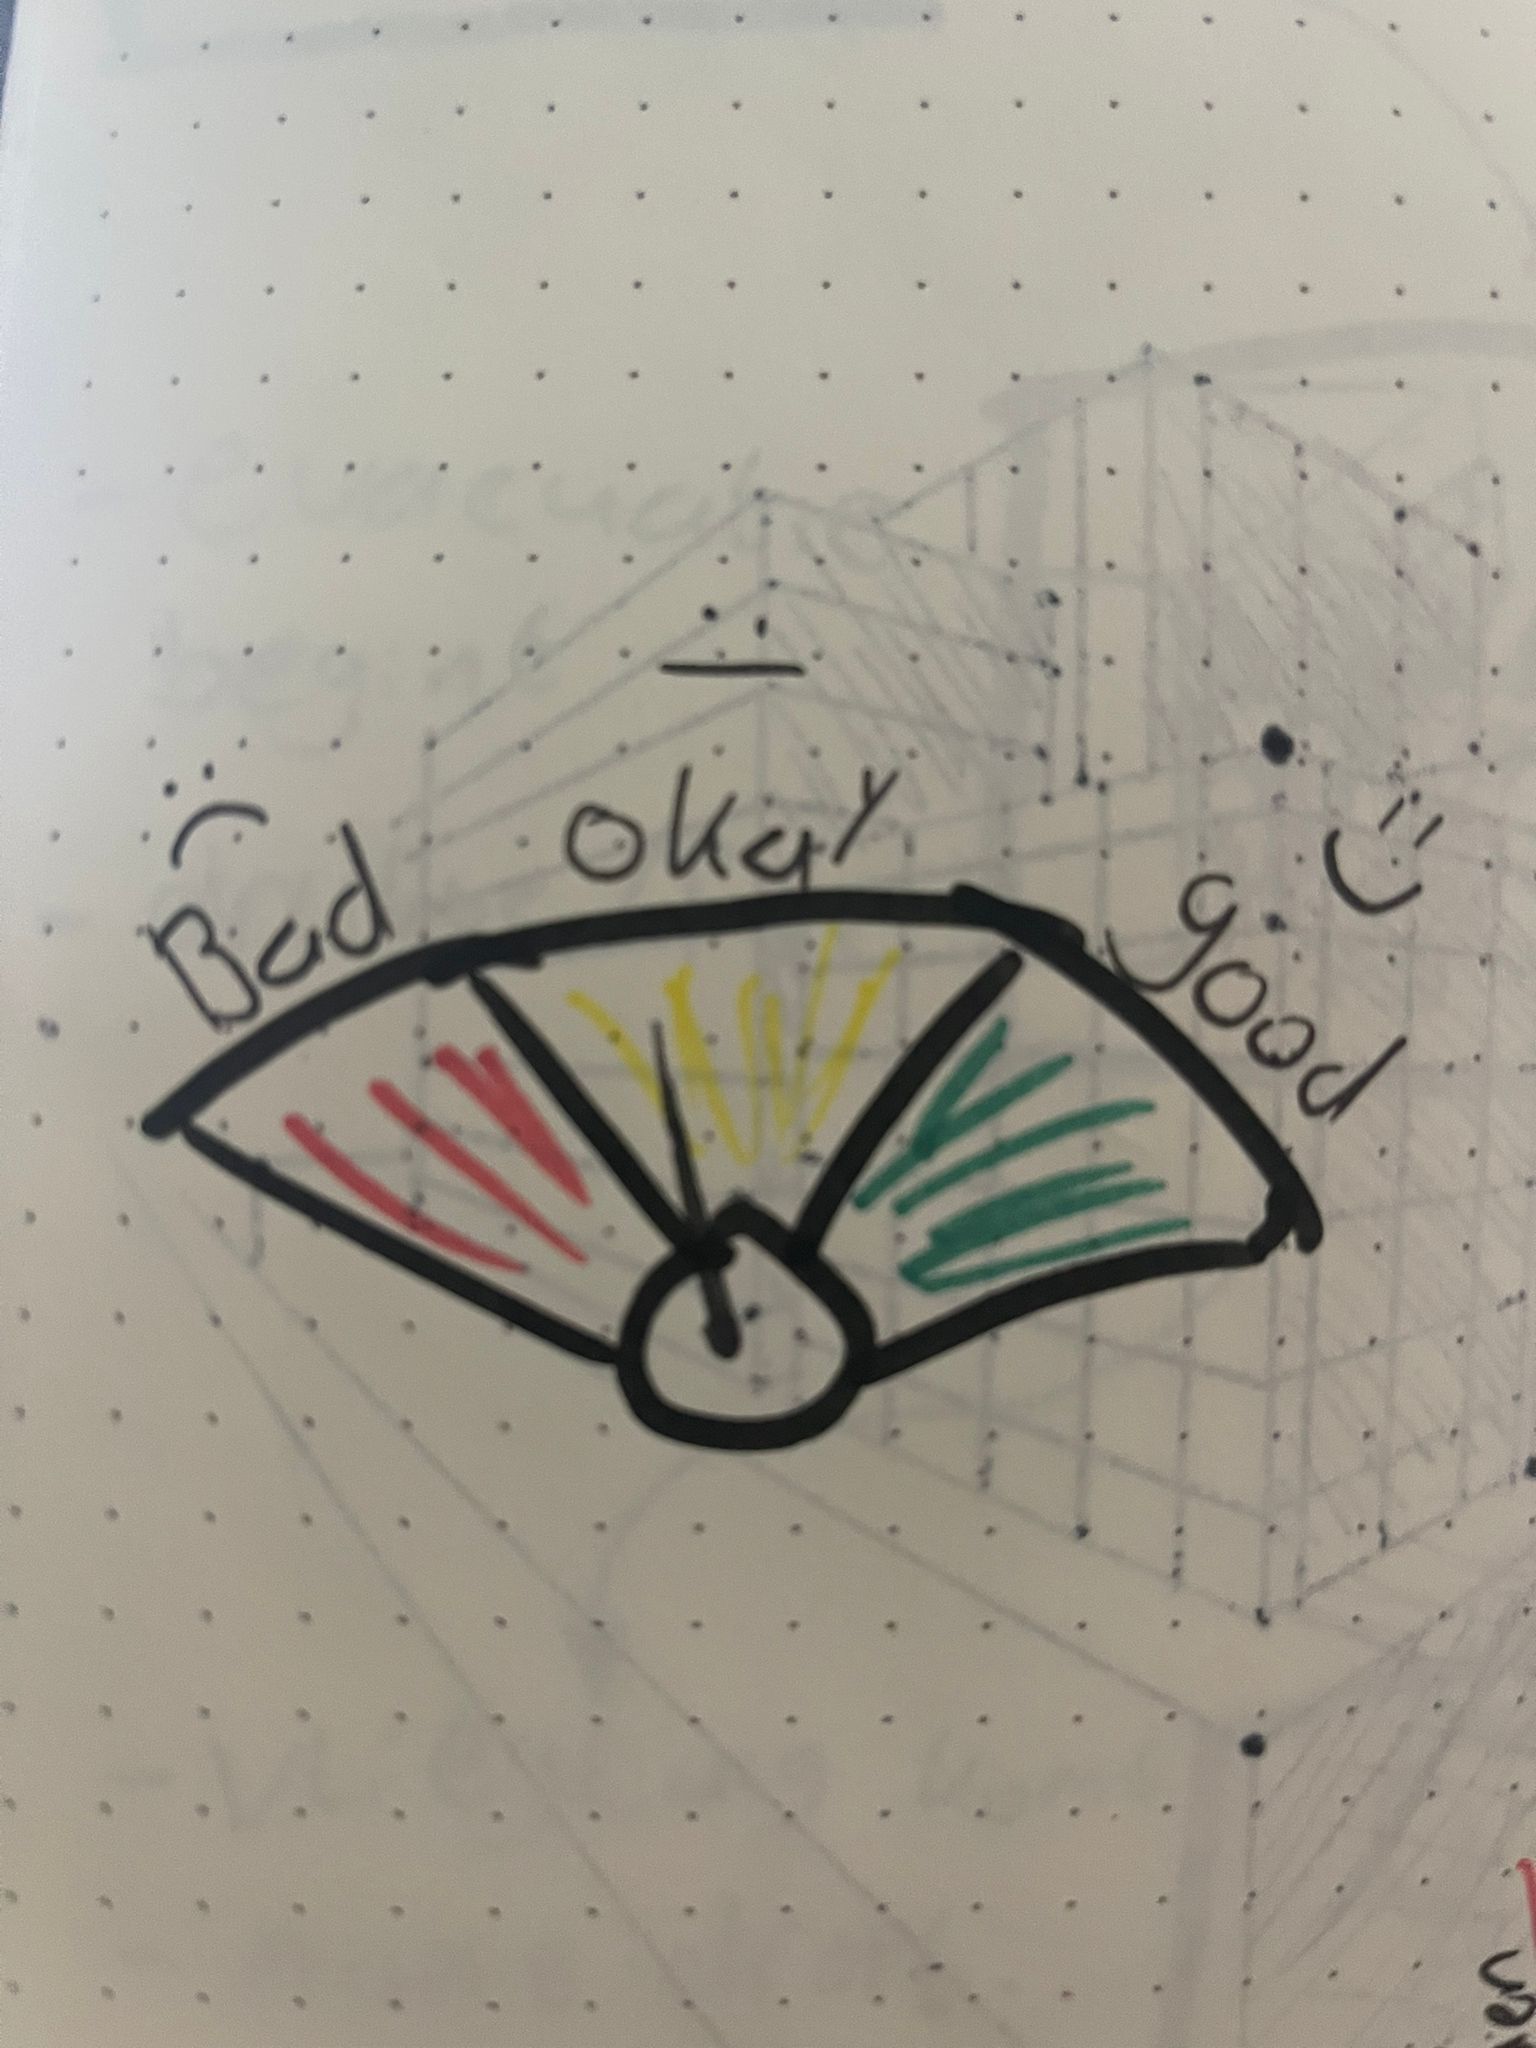 Bad
okay
good